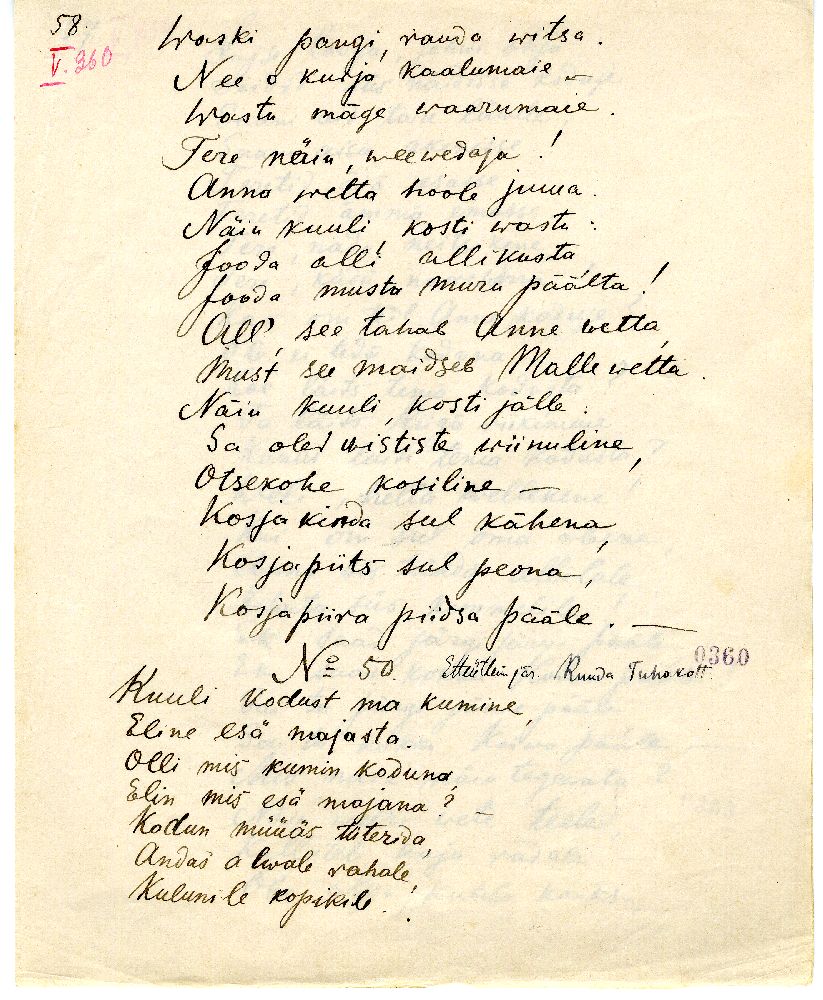 58.
V. 360
Waski pangi, rauda witsa.
Nee o kurja kaalumaie –
Wastu mäge waarumaie.
Tere näiu, weewedaja!
Anna wetta hoole juua.
Näiu kuuli kosti wastu:
Jooda alli allikusta,
Jooda musta muru päälta!
All' see tahab Anne wetta,
Must see maidseb Malle wetta.
Näiu kuuli, kosti jälle:
Sa oled wististe wiinuline,
Otsekohe kosiline –
Kosja kinda sul kähena,
Kosjapiits sul peona,
Kosjapiira piidsa pääle. –
№ 50. Ruuda Tuhakott.
0360
Kuuli kodust ma kumine,
Eline esä majasta.
Olli mis kumin koduna,
Elin mis esä majana? –
Kodun müüäs tüterida,
Andas alwale rahale,
Kulunile kopikile.